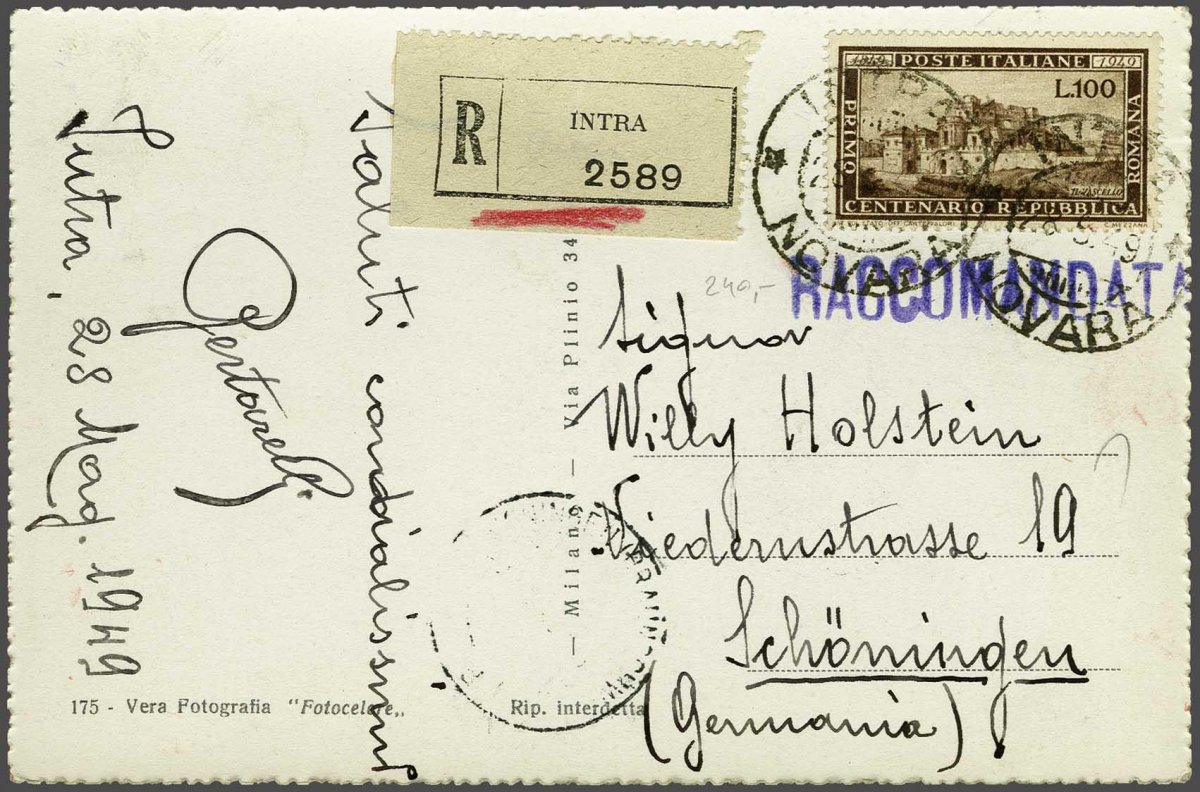 Intra, 28 Mag. 1949
Saluti cordialissimi
R
INTRA
2589
1849 POSTE ITALIANE 1949
L.100
PRIMO
ROMANA
CENTENARIO REPUBBLICA
INTRA
NOVARA
NOVARA
RACCOMANDATA
240,-
Signor
Willy Holstein
Niedernstrasse 19
Schöningen
(Germania)
— Milano — Via Plinio 34
175 - Vera Fotografia "Fotocelere„
Rip. interdetta